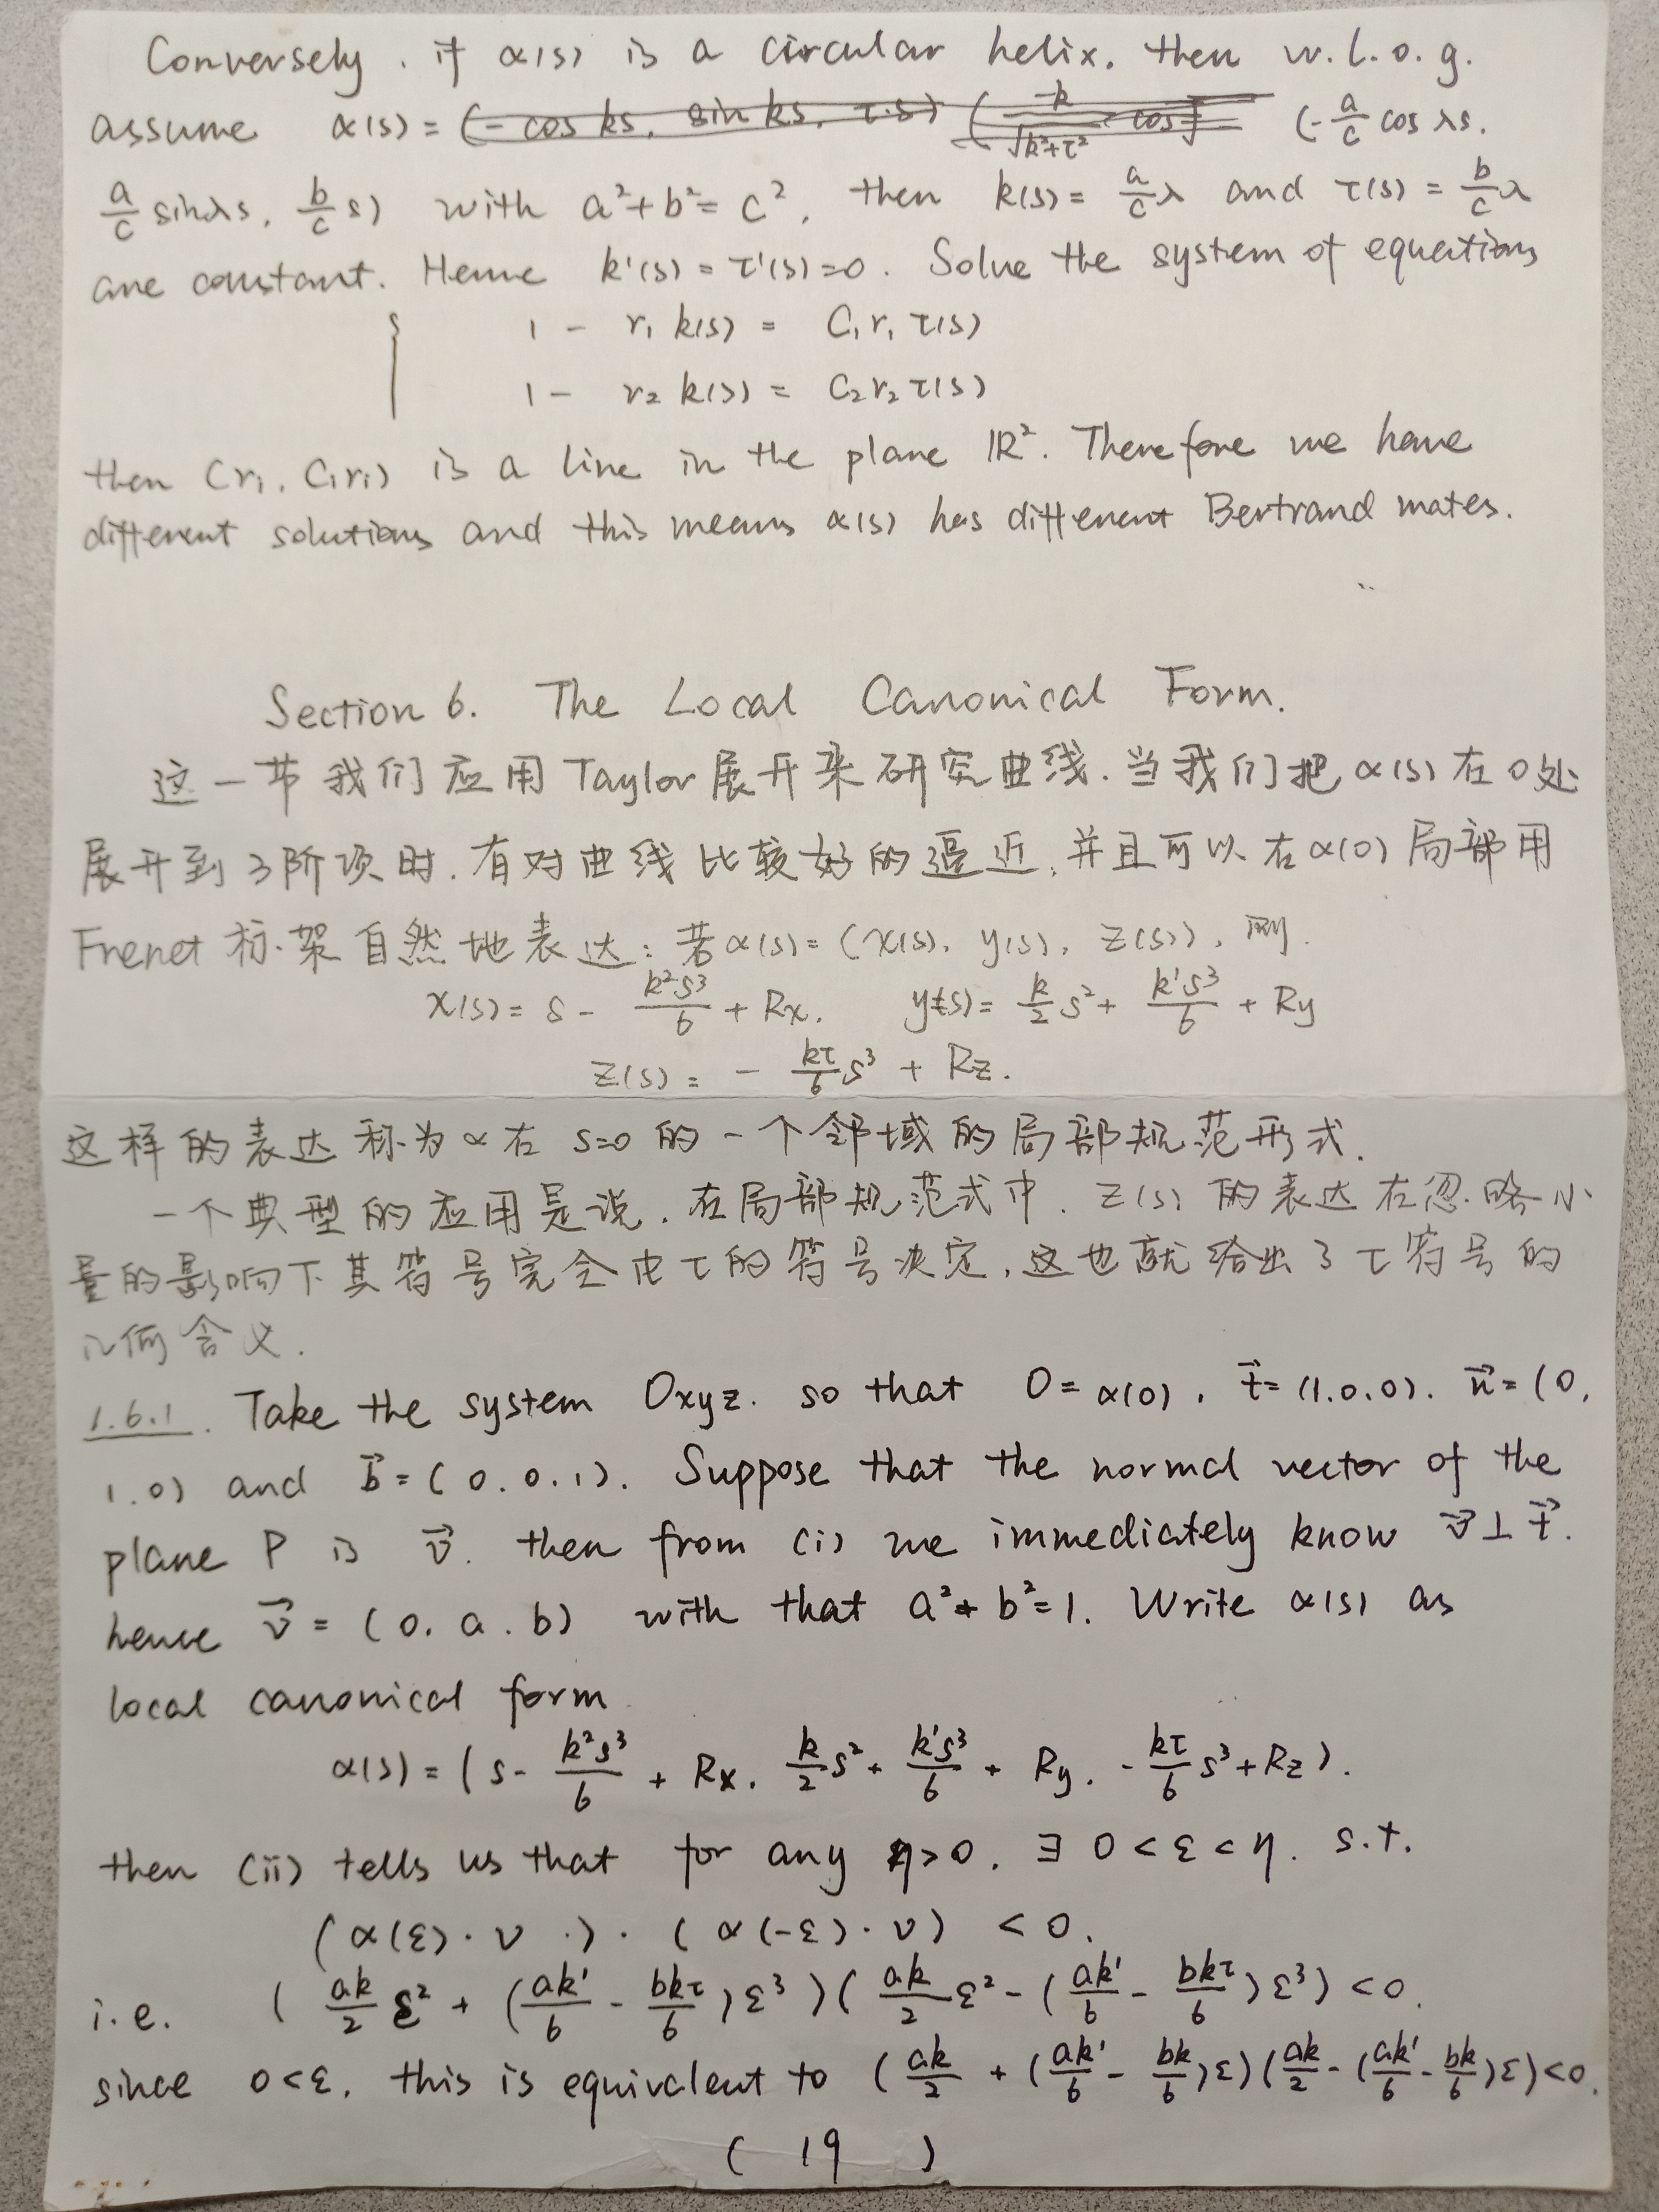 Conversely, if α(s) is a circular helix, then w.l.o.g.
assume α(s) = (-cos ks, sin ks, τ·s) (-k/√(k²+τ²) cos (-a/c cos λs,
a/c sin λs, b/c s) with a²+b²=c², then k(s) = a/c λ and τ(s) = b/c λ
are constant. Hence k'(s) = τ'(s) = 0. Solve the system of equations
{ 1 - r₁ k(s) = C₁r₁ τ(s)
1 - r₂ k(s) = C₂r₂ τ(s)
then (r₁, C₁r₁) is a line in the plane ℝ². Therefore we have
different solutions and this means α(s) has different Bertrand mates.
Section 6. The Local Canonical Form.
这一节我们应用Taylor展开来研究曲线.当我们把α(s)在0处
展开到3阶项时,有对曲线比较好的逼近,并且可以在α(0)局部用
Frenet标架自然地表达:若α(s)=(x(s), y(s), z(s)),则
x(s) = s - k²s³/6 + Rx, y(s) = k/2 s² + k's³/6 + Ry
z(s) = - kτ/6 s³ + Rz.
这样的表达称为α在s=0的一个邻域的局部规范形式.
一个典型的应用是说,在局部规范式中,z(s)的表达在忽略小
量的影响下其符号完全由τ的符号决定,这也就给出了τ符号的
几何含义.
1.6.1. Take the system Oxyz. so that O = α(0), t⃗ = (1,0,0). n⃗ = (0,
1,0) and b⃗ = (0,0,1). Suppose that the normal vector of the
plane P is v⃗. then from (i) we immediately know v⃗ ⊥ t⃗.
hence v⃗ = (0, a, b) with that a²+b²=1. Write α(s) as
local canonical form
α(s) = (s - k²s³/6 + Rx, k/2 s² + k's³/6 + Ry, - kτ/6 s³ + Rz).
then (ii) tells us that for any η>0, ∃ 0<ε<η. s.t.
(α(ε)·v)·(α(-ε)·v) < 0.
i.e. (ak/2 ε² + (ak'/6 - bkτ/6)ε³)(ak/2 ε² - (ak'/6 - bkτ/6)ε³) < 0.
since 0<ε, this is equivalent to (ak/2 + (ak'/6 - bk/6)ε)(ak/2 - (ak'/6 - bk/6)ε) < 0.
( 19 )